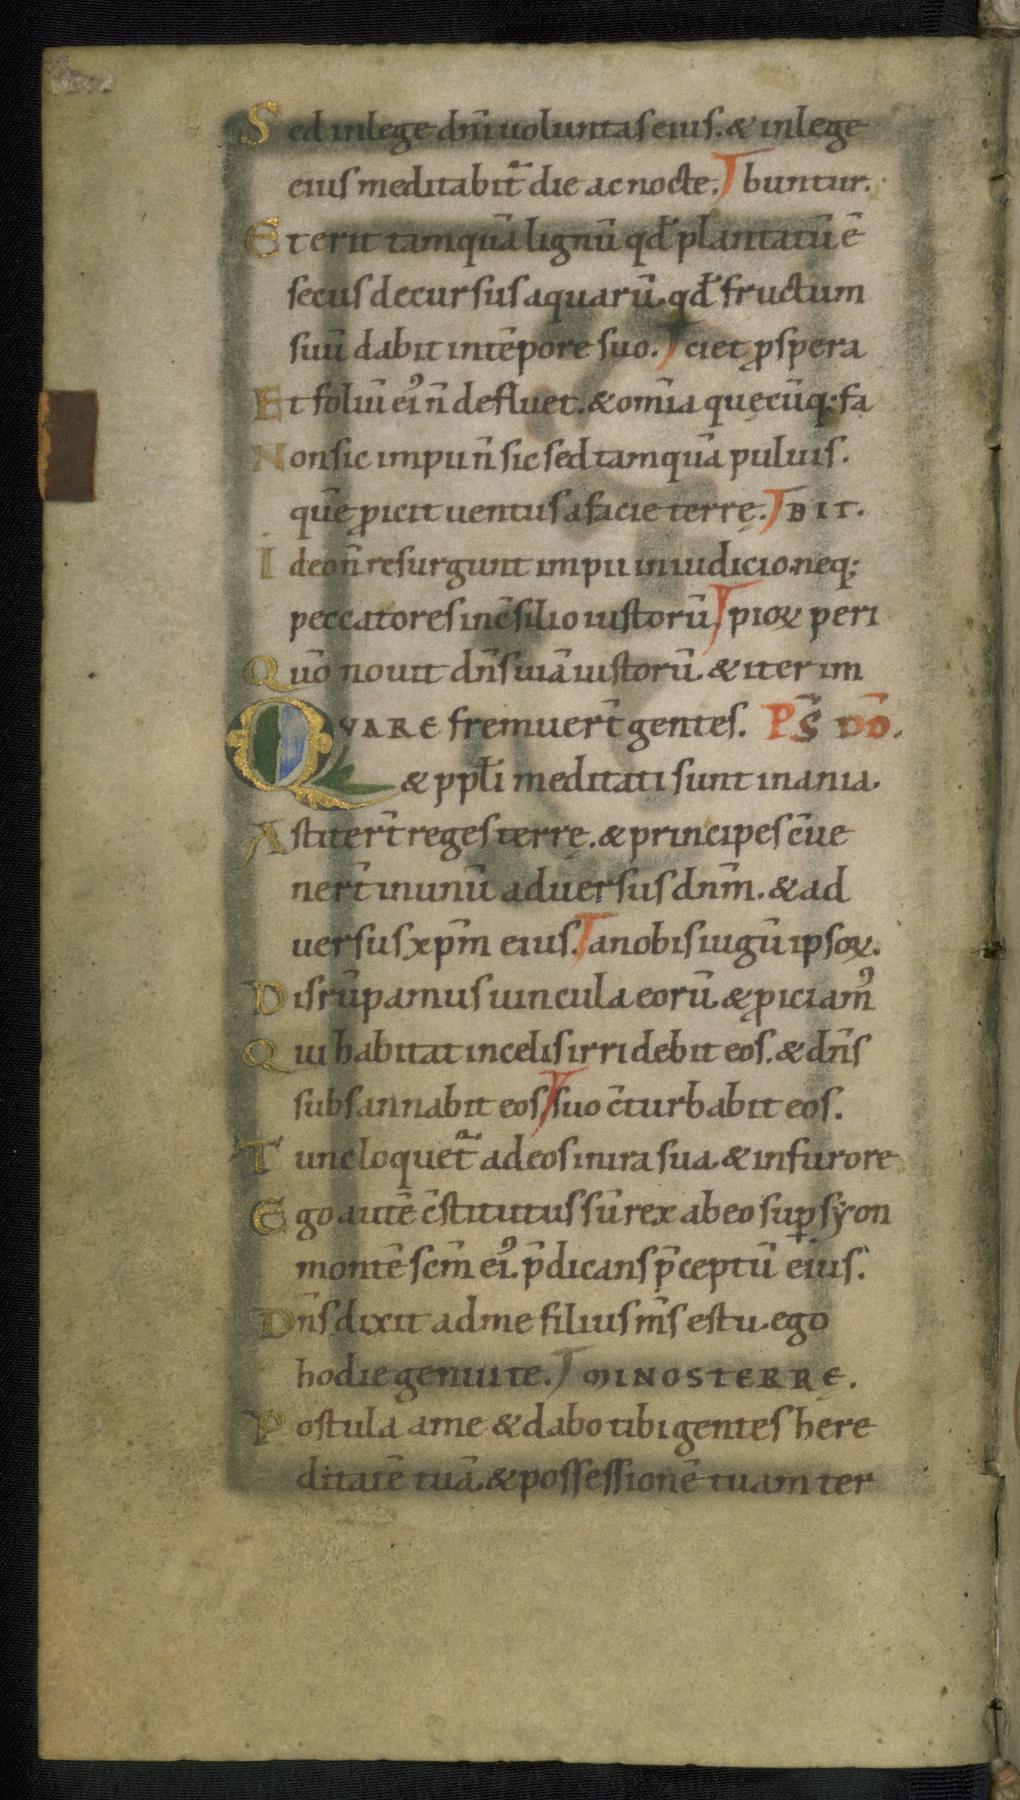 Sed inlege dn̄i uoluntas eius. & inlege
eius meditabit̄ die ac nocte. buntur.
Et erit tamquā lignū qđ plantatū ē
secus decursus aquarū. qđ fructum
suū dabit intēpore suo. ciet ꝓspera
Et foliū ei᾽ n̄ defluet. & om̄ia quęcūq; fa
Non sic impii n̄ sic sed tamquā puluis.
quē ꝓicit uentus afacie terrę. BIT.
Ideo n̄ resurgunt impii iniudicio. neq;
peccatores inc̄silio iustorū pioꝝ peri
Quō nouit dn̄s uiā iustorū. & iter im
QVARE fremuer̄t gentes. PS̄ DD̄.
& ppl̄i meditati sunt inania.
Astiter̄t reges terrę. & principes c̄ue
ner̄t inunū aduersus dn̄m. & ad
uersus xp̄m eius. anobis iugū ipsoꝝ.
Disrūpamus uincula eorū. & ꝓiciam᾽
Qui habitat incelis irridebit eos. & dn̄s
subsannabit eos suo c̄turbabit eos.
Tunc loquet̄ adeos inira sua. & infurore
Ego autē c̄stitutus sū rex abeo suꝑ syon
montē sc̄m ei᾽. p̄dicans p̄ceptū eius.
Dn̄s dixit adme filius m̄s es tu. ego
hodie genui te. MINOS TERRĘ.
Postula ame & dabo tibi gentes here
ditatē tuā. & possessionē tuam ter